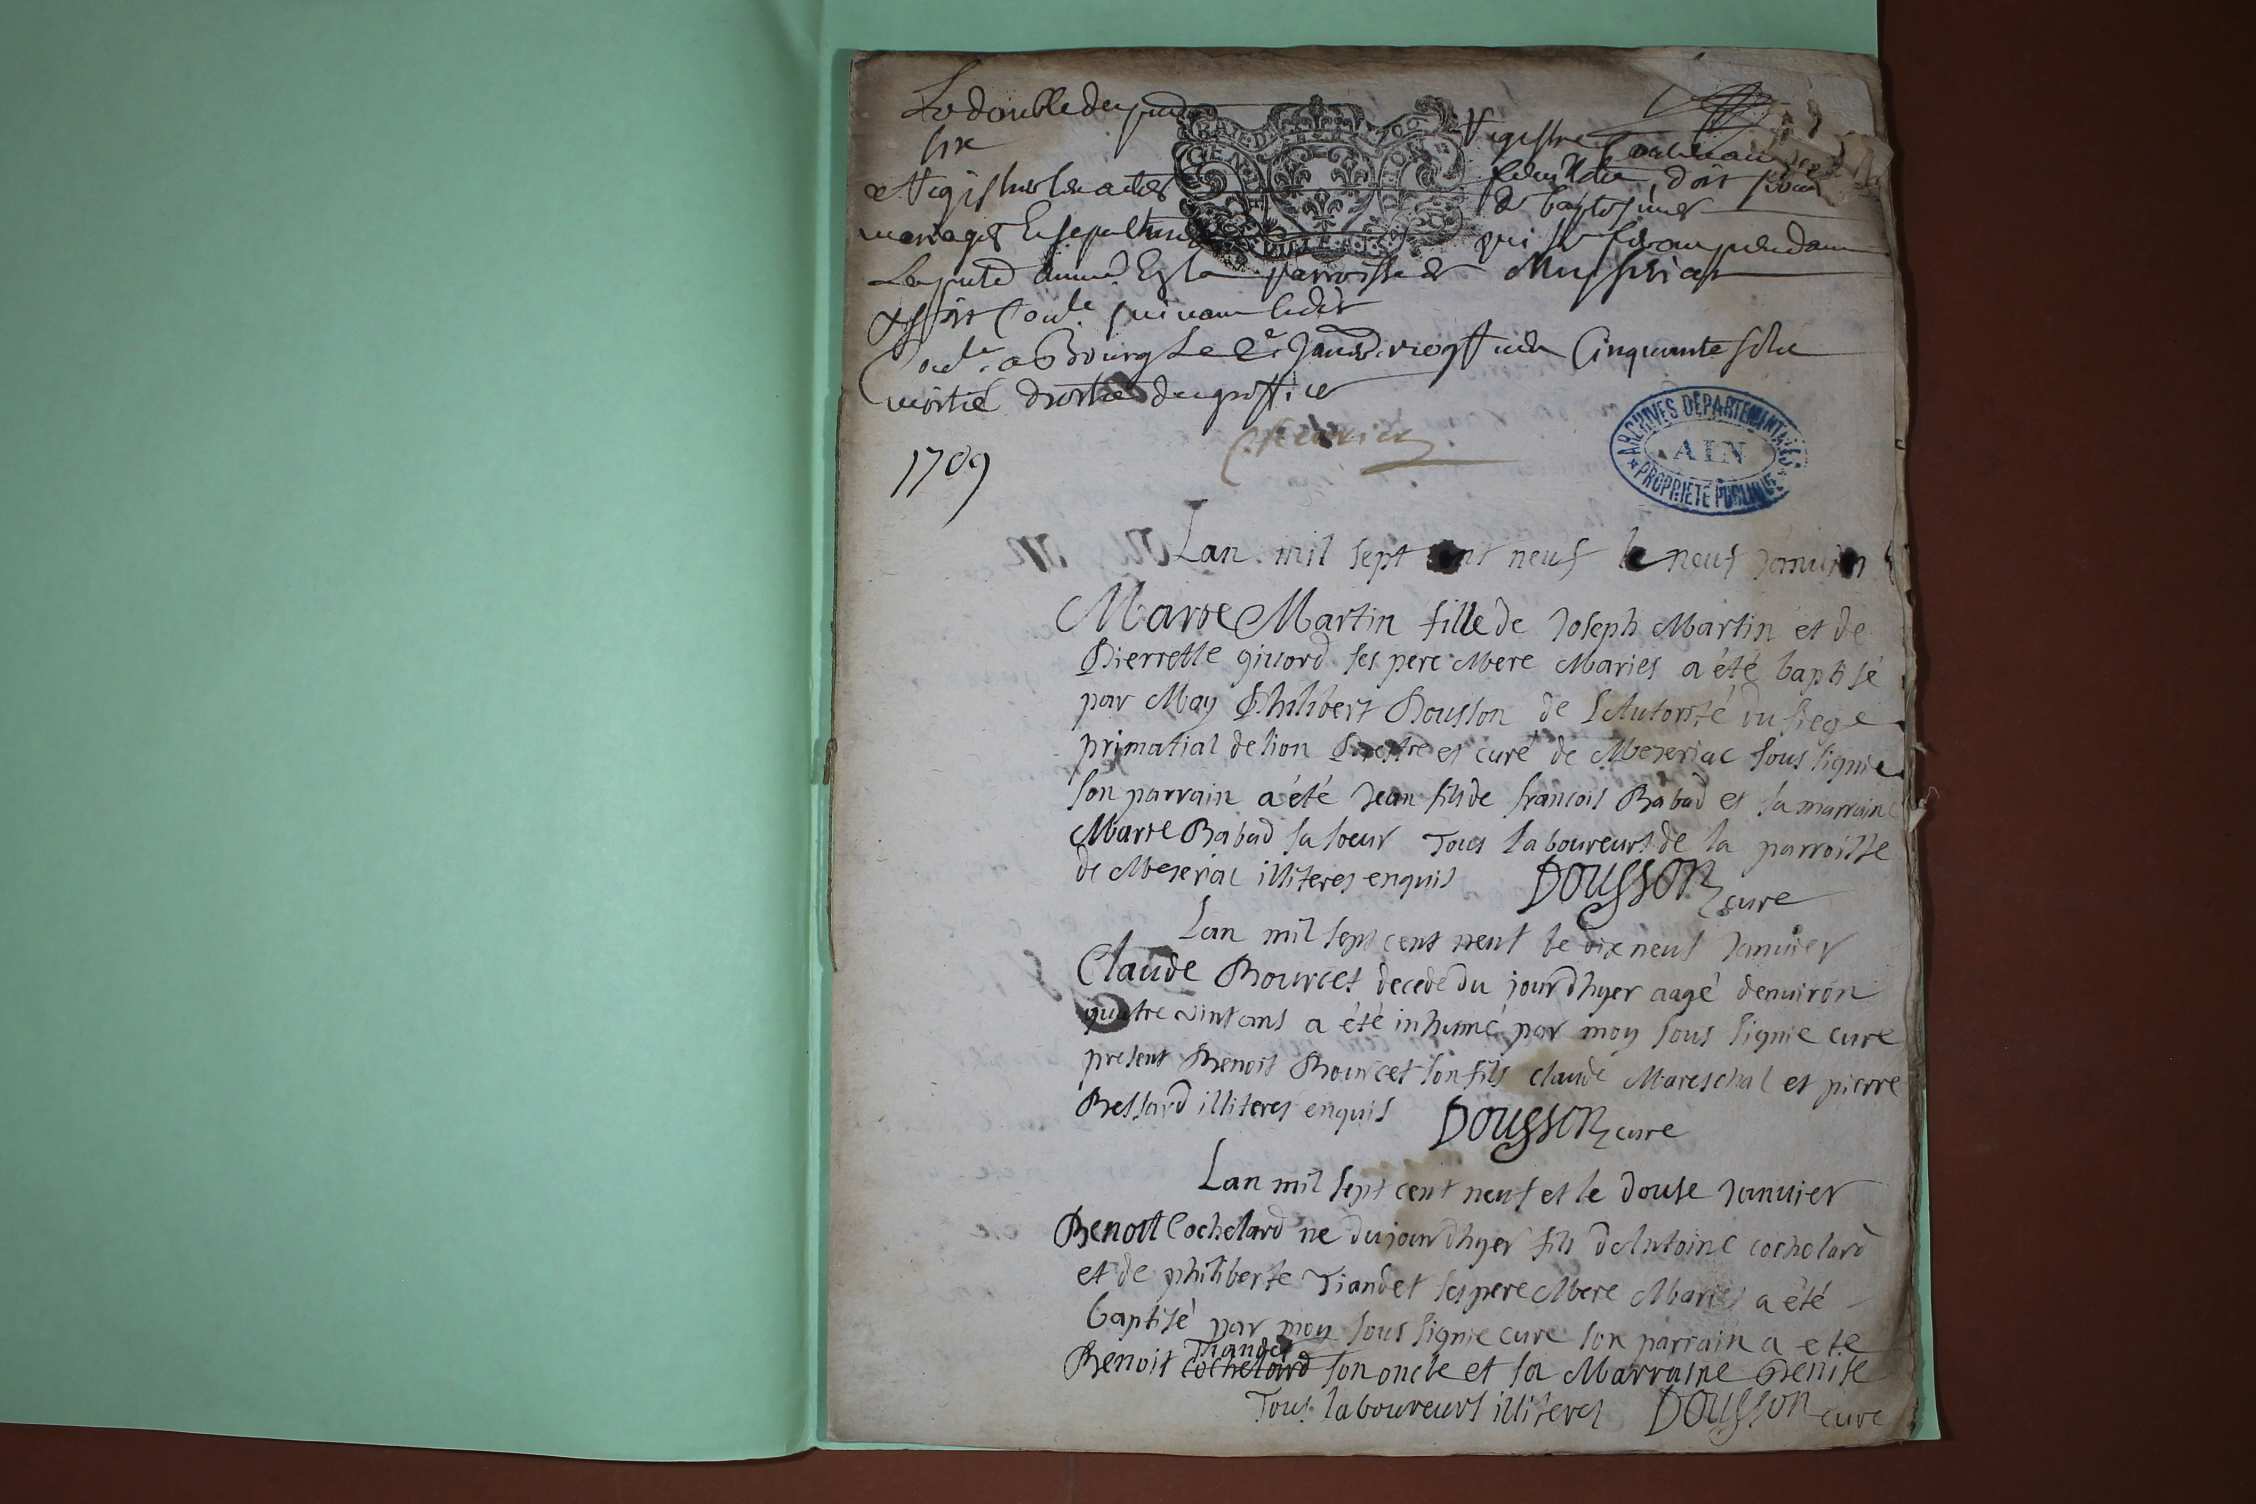 Le double du
six
Registre
Registre les actes
feuillets, doit pour
de baptesmes
mariages Et sepultures
qui se feront pendant
La parroisse de
suivant ledit
a Bourg Le 2e Janv. Cinquante sols
moitié droits du greffier
GEN
1709
ARCHIVES DÉPARTEMENTALES
AIN
PROPRIÉTÉ PUBLIQUE
Lan mil sept cent neuf le neuf Januier
Marie Martin fille de Joseph Martin et de
Pierrette ses pere Mere Maries a été baptisé
par Moy Philibert Dousson de l'Autorité du siege
primatial de lion Prestre et curé de Meseriac sous signie
son parrain a été Jean fils de francois Rabad et sa marraine
Marie Rabad sa soeur Tous laboureurs de la parroisse
de Meseriac illiteres enquis DOUSSON cure
Lan mil sept cent neuf le dix neuf Januier
Claude Bourcet decede du jour d'hyer aagé denuiron
quatre vint ans a été inhumé par moy sous signie cure
present Benoit Bourcet son fils claude Mareschal et pierre
Bessard illiteres enquis DOUSSON cure
Lan mil sept cent neuf et le douse Januier
Benoit Cochelard ne du jour d'hyer fils d'Antoine cochelard
et de philiberte Tiandet ses pere Mere Maries a été
baptisé par moy sous signie cure son parrain a ete
Tiandet
Benoit Cochelard son oncle et sa Marraine Denise
Tous laboureurs illiteres DOUSSON cure